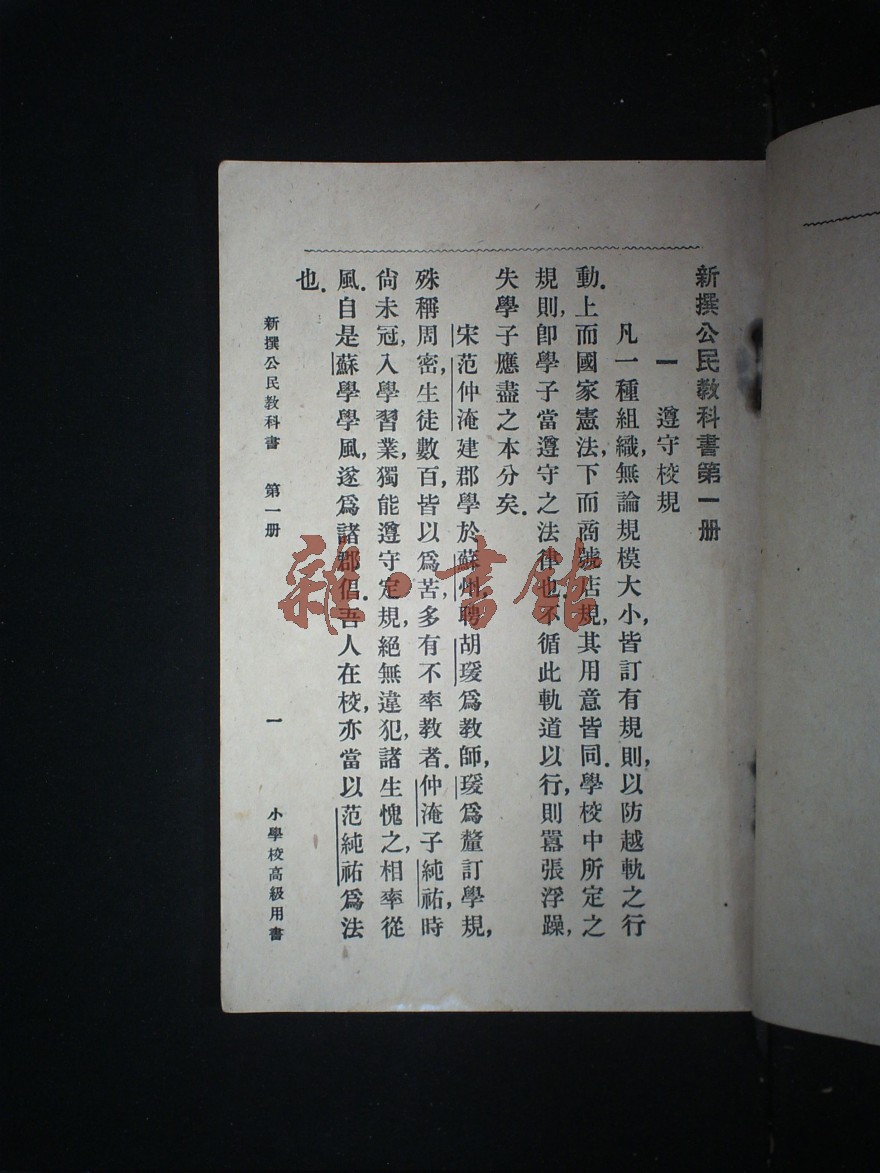 新撰公民教科書第一册
一　遵守校規
凡一種組織，無論規模大小，皆訂有規則，以防越軌之行
動．上而國家憲法，下而商號店規，其用意皆同．學校中所定之
規則，卽學子當遵守之法律也．不循此軌道以行，則囂張浮躁，
失學子應盡之本分矣．
宋范仲淹建郡學於蘇州，聘胡瑗爲教師，瑗爲釐訂學規，
殊稱周密，生徒數百，皆以爲苦，多有不率教者．仲淹子純祐，時
尙未冠，入學習業，獨能遵守定規，絕無違犯，諸生愧之，相率從
風．自是蘇學學風，遂爲諸郡倡．吾人在校，亦當以范純祐爲法
也．
新撰公民教科書　第一册　一　小學校高級用書
雜·書館